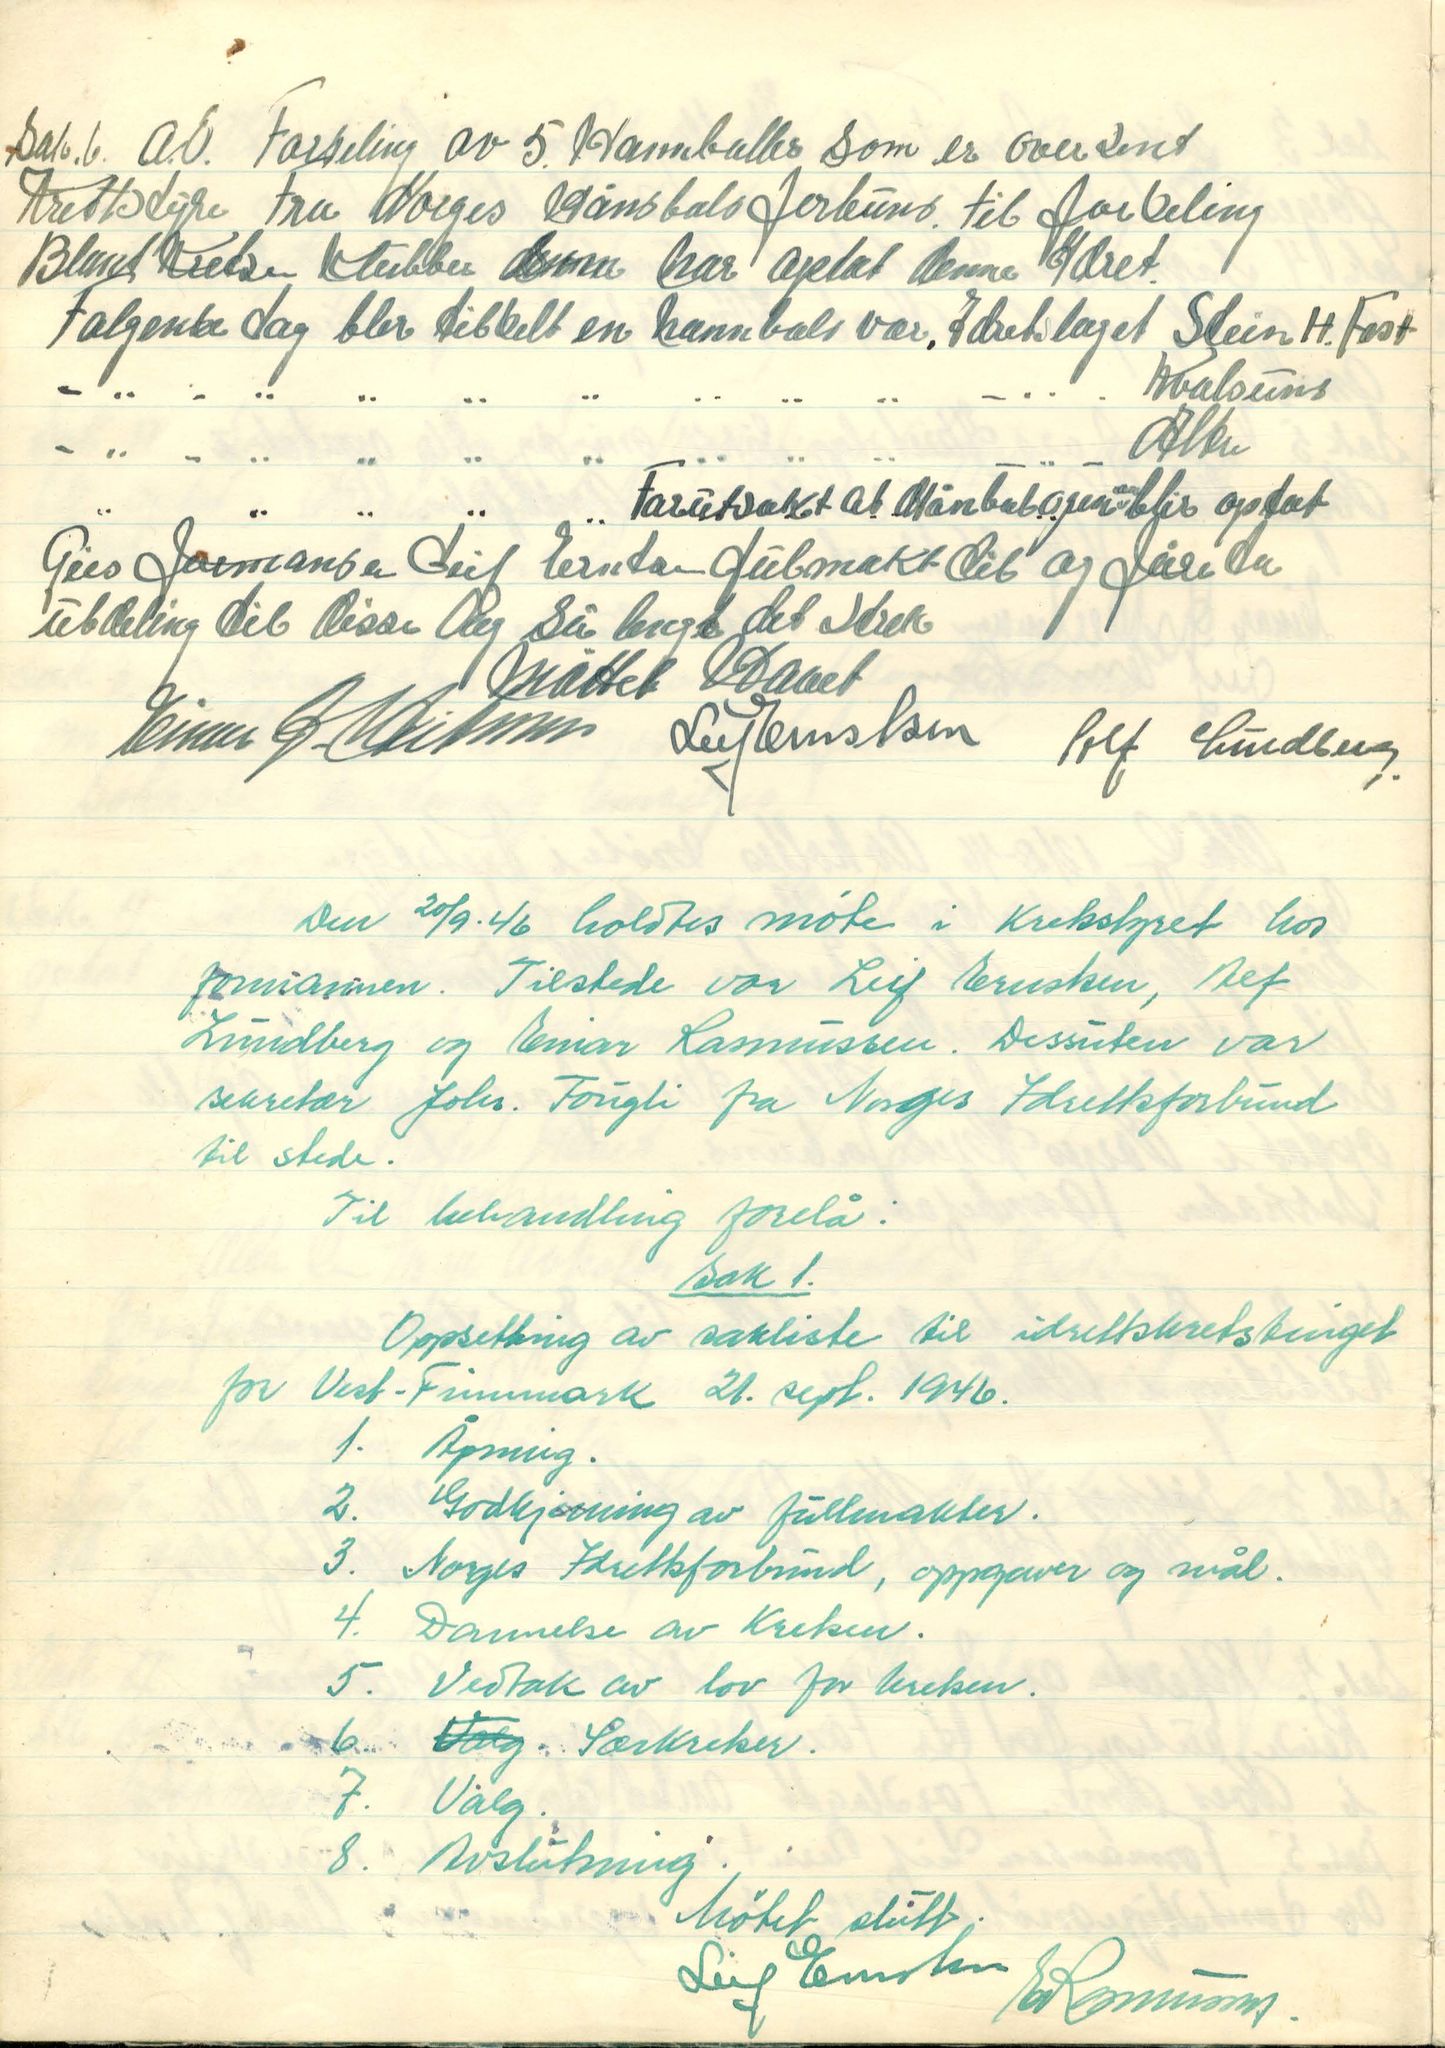 Sak. 6. A.O. Fordeling av 5. Hannballer som er oversent
Kretsstyre fra Norges Hånbals Forbund. til fordeling
Blant Kretsen Klubber som har optat denne Idret.
Følgende lag blev tildelt en hannbals vær. Idretslaget Stein H. Fest
- " - " " " " " " " - " " Kvalsund
- " - " " " " " " " " Alta
" " " " " Forutsakt at Hånbalgren blir optat
Gies Formansen Leif Erntsen fulmakt til og føre ta
utdeling til disse lag så langt det strek
Møttet Hævet
Einar Leif Ernstsen Alf Lundberg.
Den 20/9.46 holdtes möte i kretsstyret hos
formannen. Tilstede var Leif Erntsen, Alf
Lundberg og Einar Rasmussen. Dessuten var
sekretær Johs. Tougli fra Norges Idrettsforbund
til stede.
Til behandling forelå:
Sak 1.
Oppsetting av sakliste til idrettskretstinget
for Vest-Finnmark 21. sept. 1946.
1. Åpning.
2. Godkjenning av fullmakter.
3. Norges Idrettsforbund, oppgaver og mål.
4. Dannelse av Kretsen.
5. Vedtak av lov for kretsen.
6. Valg. Særkretser.
7. Valg.
8. Avslutning.
Mötet slutt.
Leif Ernstsen E Rasmussen.